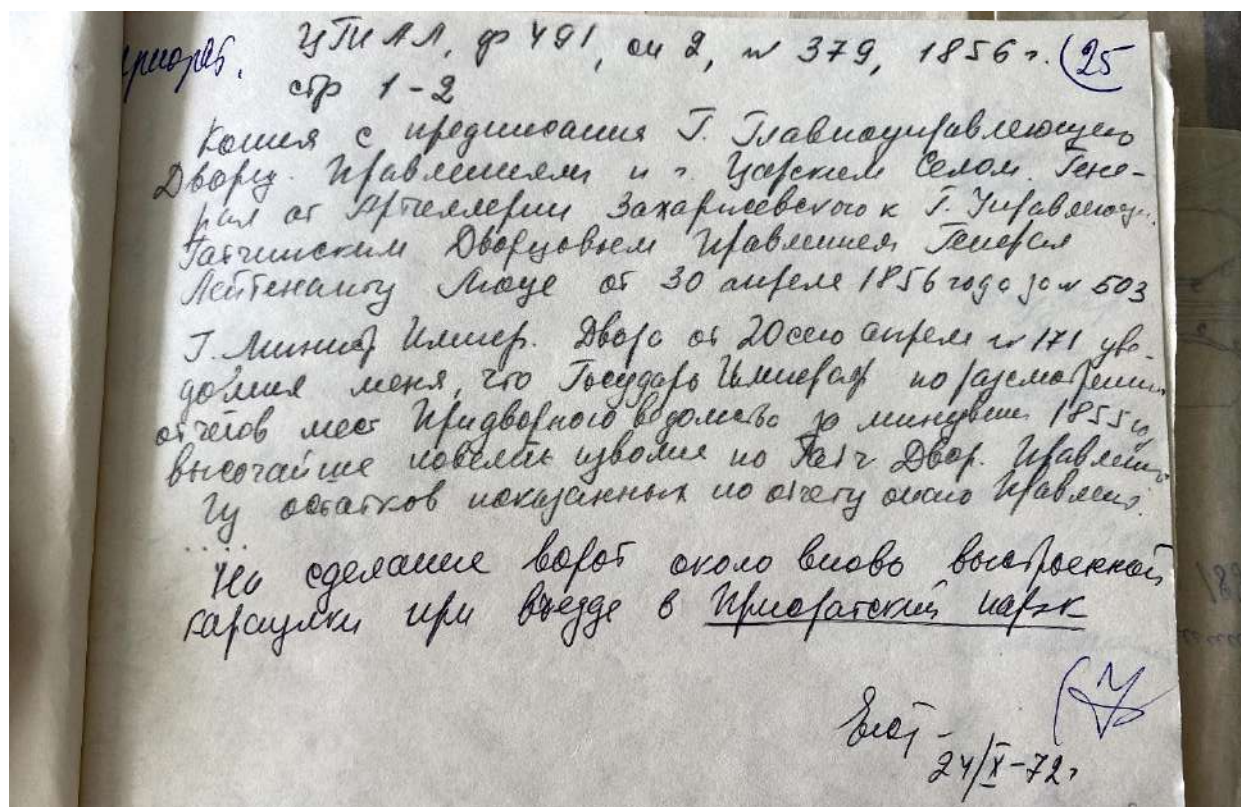 приорат.
ЦГИАЛ, ф 491, оп 2, № 379, 1856 г. (25
стр 1-2
Копия с предписания Г. Главноуправляющего
Дворц. Правлениями и г. Царским Селом. Гене-
рал от Артиллерии Захаржевского к Г. Управляющ.
Гатчинским Дворцовым Правлением Генерал
Лейтенанту Люце от 30 апреля 1856 года за № 503
Г. Министр Импер. Двора от 20 сего апреля № 171 уве-
домил меня, что Государь Император по рассмотрении
отчетов мест Придворного ведомства за минувший 1855 г,
высочайше повелеть изволил по Гатч Двор. Правлению
Из остатков показанных по отчету оного Правлен.
.....
На сделание ворот около вновь выстроенной
караулки при въезде в Приоратский парк
24/X-72г